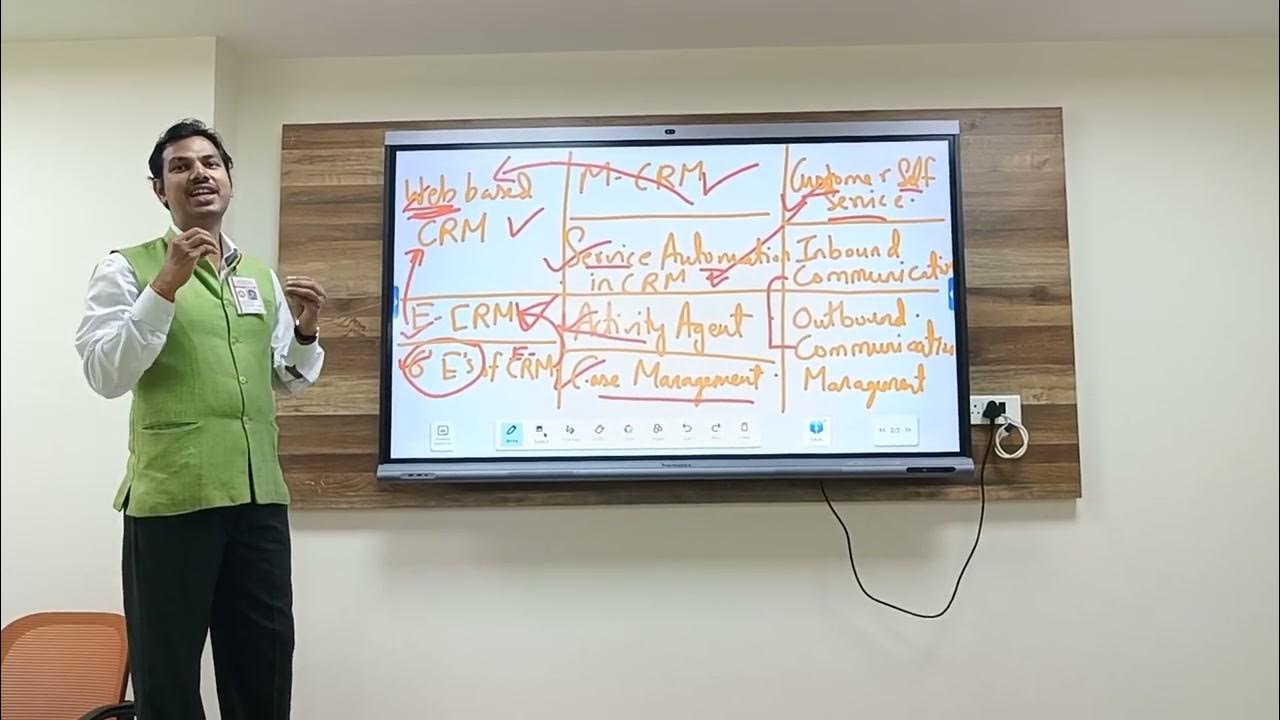 Web based
CRM
E-CRM
6 E's of E-CRM
M-CRM
Service Automation
in CRM
Activity Agent
Case Management
Customer Self
Service.
Inbound
Communication
Outbound
Communication
Management
2/2